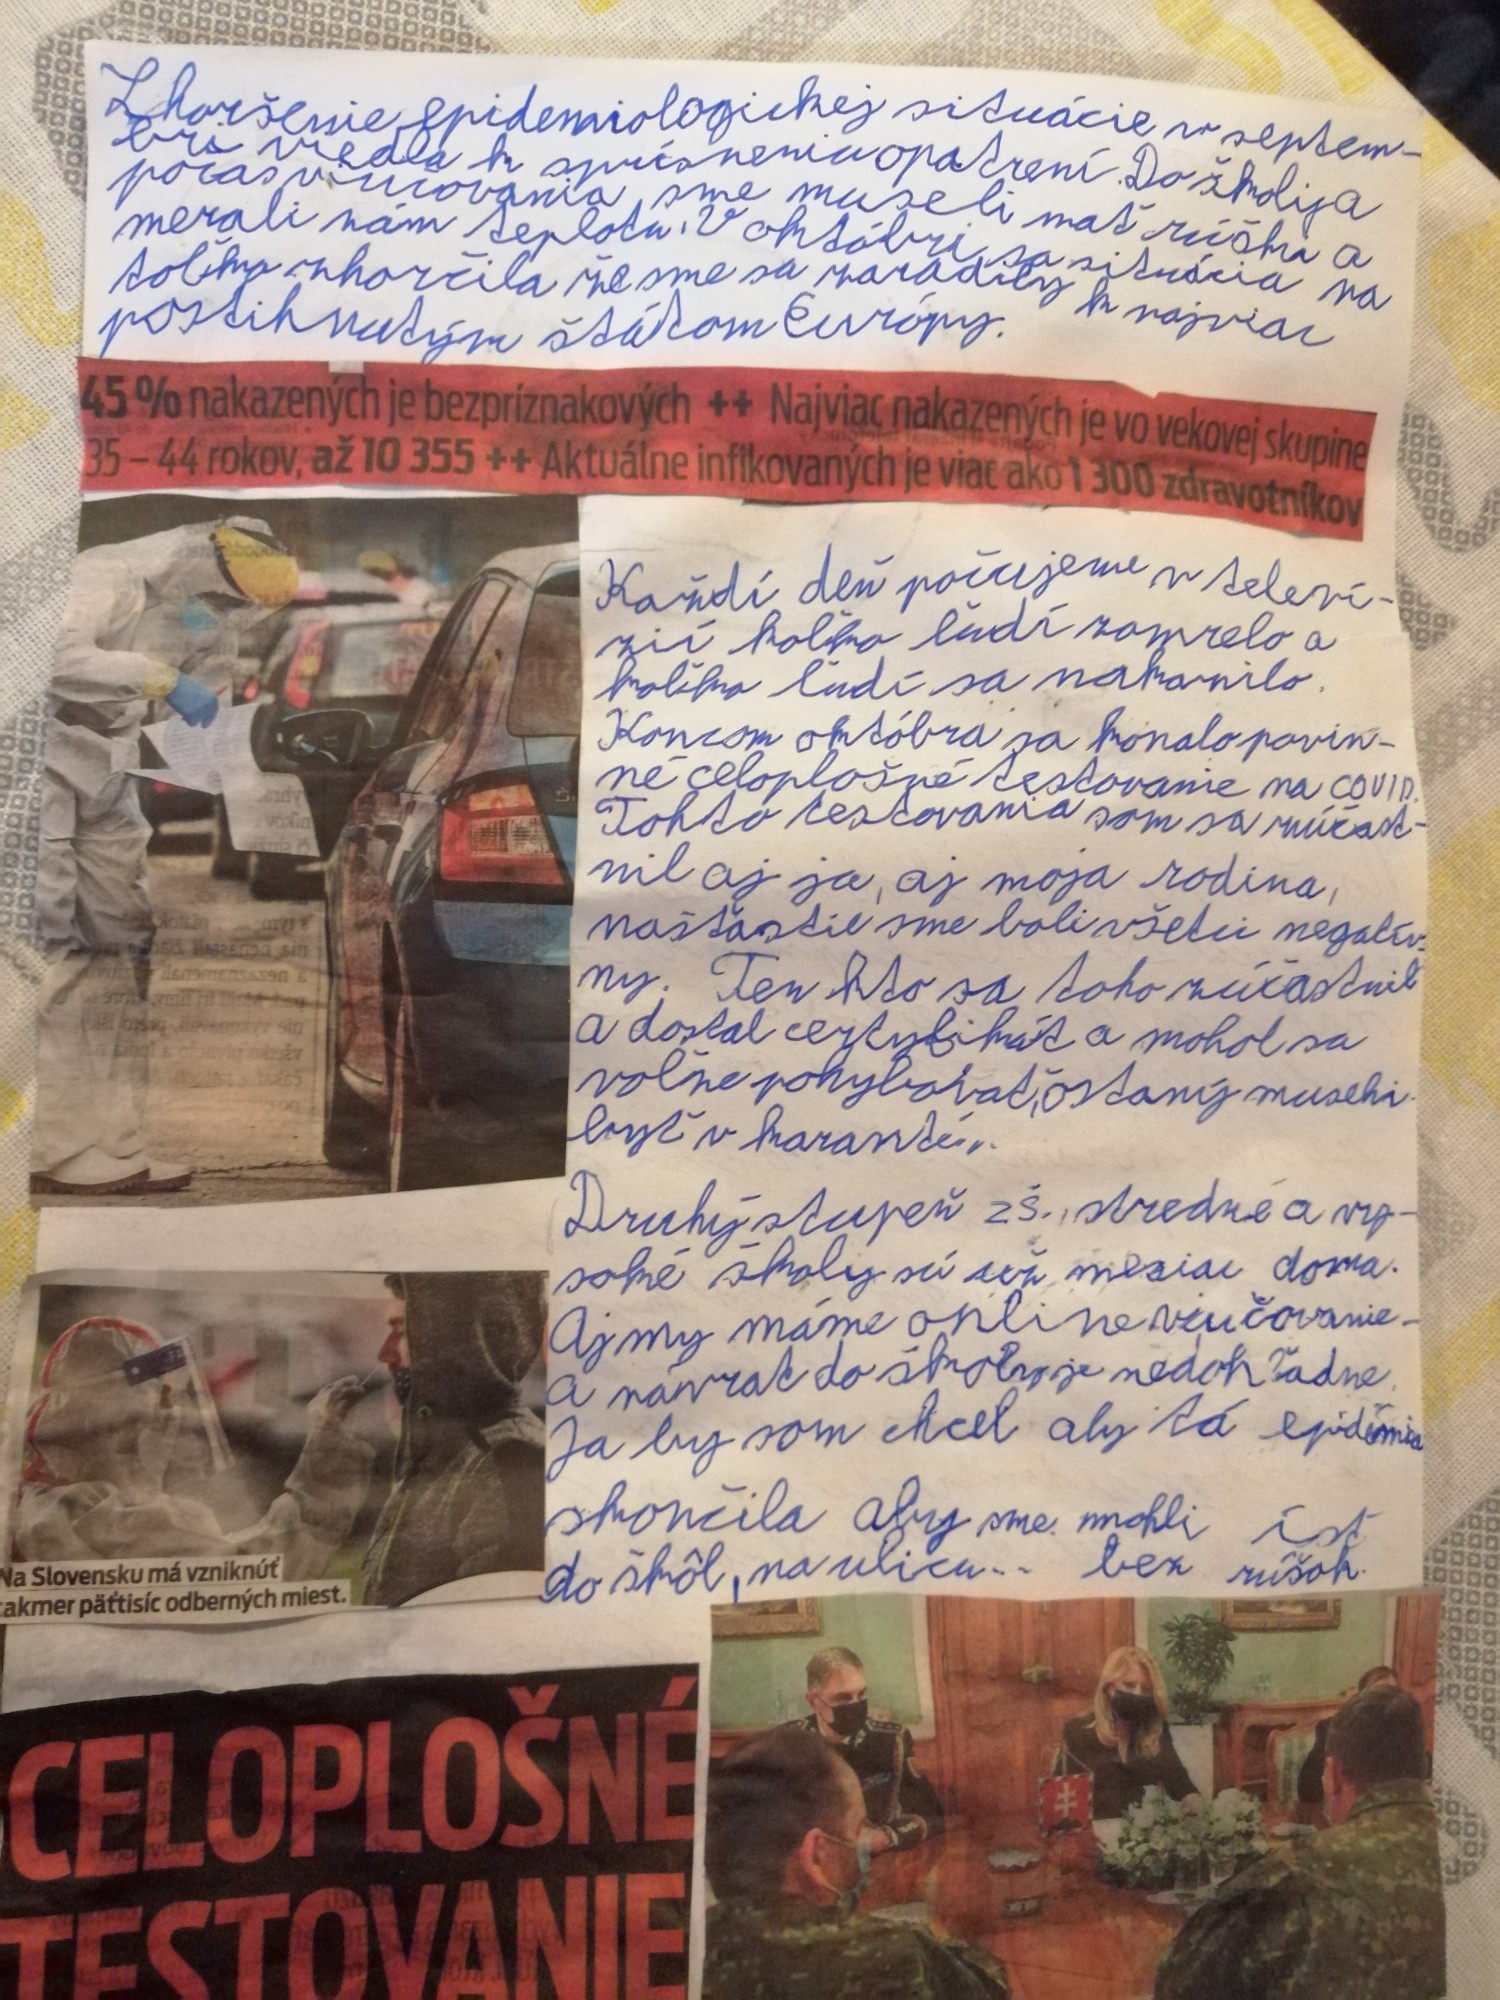 Zhoršenie epidemiologickej situácie v septem-
bri viedla k sprísneniu opatrení. Do školy a
počas vyučovania sme museli mať rúška a
merali nám teplotu. V októbri sa situácia na
toľko zhorčila že sme sa zaradily k najviac
postihnutým štátom Európy.
45 % nakazených je bezpríznakových ++ Najviac nakazených je vo vekovej skupine
35 – 44 rokov, až 10 355 ++ Aktuálne infikovaných je viac ako 1 300 zdravotníkov
Každí deň počujeme v televí-
zií koľko ľudí zomrelo a
koľko ľudí sa nakazilo.
Koncom októbra sa konalo povin-
né celoplošné testovanie na COVID.
Tohto testovania som sa zúčast-
nil aj ja, aj moja rodina,
našťastie sme boli všetci negatív-
ny. Ten kto sa toho zúčastnil
a dostal certyfikát a mohol sa
voľne pohybovať, ostaný museli
byť v
Druhý stupeň ZŠ., stredné a vy-
soké školy sú už mesiac doma.
Aj my máme online vyučovanie
a návrat do školy je nedohľadne.
Ja by som chcel aby tá epidémia
skončila aby sme mohli ísť
do škôl, na ulicu... bez rúšok.
Na Slovensku má vzniknúť
takmer päťtisíc odberných miest.
CELOPLOŠNÉ
TESTOVANIE